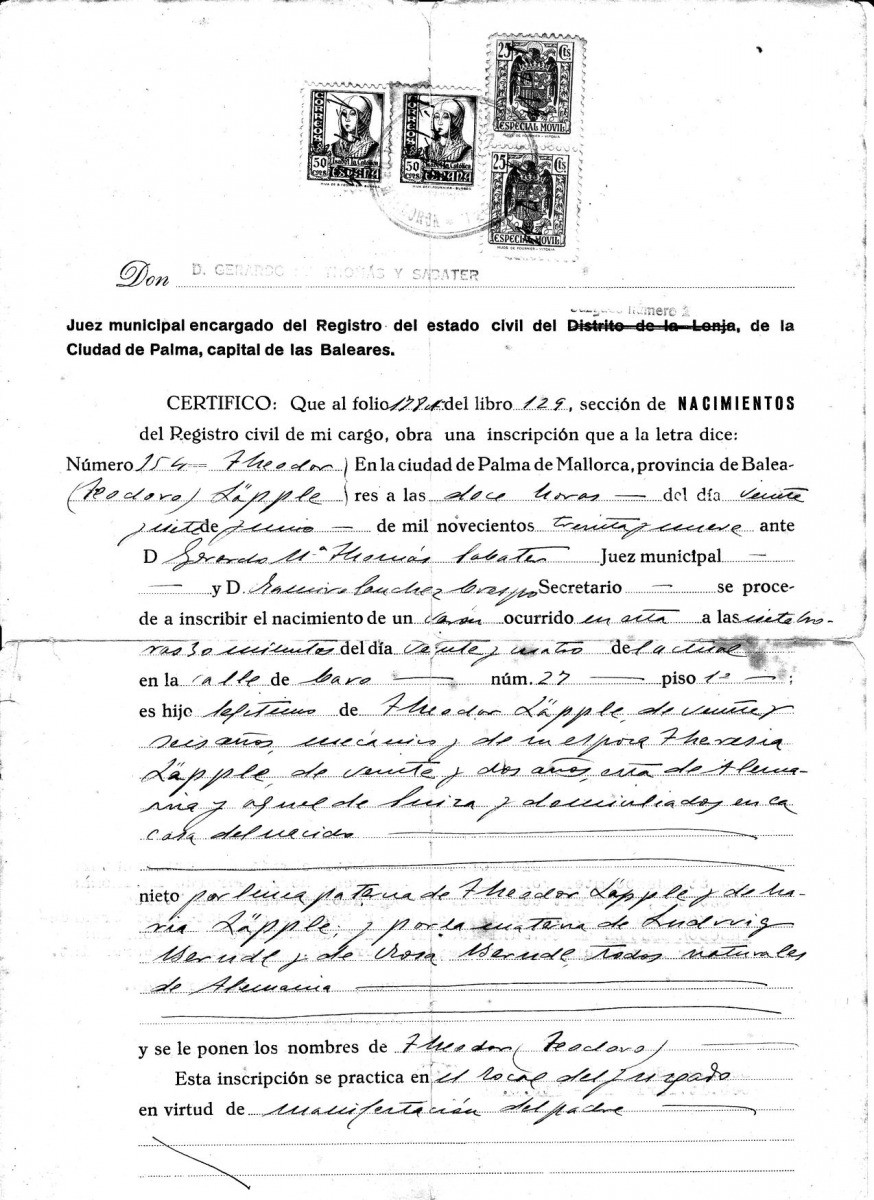 25 Cts
ESPECIAL MOVIL
HIJOS DE FOURNIER - VITORIA
CORREOS
Isabel la Católica
50 CTS
ESPAÑA
CORREOS
Isabel la Católica
50 CTS
ESPAÑA
25 Cts
ESPECIAL MOVIL
HIJOS DE FOURNIER - VITORIA
Don D. GERARDO THOMÁS Y SABATER
Número 2
Juez municipal encargado del Registro del estado civil del Distrito de la Lonja, de la
Ciudad de Palma, capital de las Baleares.
CERTIFICO: Que al folio 178 del libro 129, sección de NACIMIENTOS
del Registro civil de mi cargo, obra una inscripción que a la letra dice:
Número 254 = Theodor ) En la ciudad de Palma de Mallorca, provincia de Balea-
(Teodoro) Läpple ) res a las doce horas — del día veinte
y siete de junio — de mil novecientos treinta y nueve ante
D Gerardo Mª Thomás Sabater Juez municipal —
— y D. Ramiro Sanchez Crespo Secretario — se proce-
de a inscribir el nacimiento de un varón ocurrido en esta a las siete ho-
ras 30 minutos del día veinte y cuatro del actual
en la calle de Caro — núm. 27 — piso 1º — ;
es hijo legítimo de Theodor Läpple, de veinte y
seis años, mecánico y de su esposa Theresia
Läpple, de veinte y dos años, esta de Alema-
nia y aquel de Suiza y domiciliados en la
casa del nacido —
nieto por linea paterna de Theodor Läpple y de Ma-
ria Läpple, y por la materna de Ludwig
Berndl y de Rosa Berndl, todos naturales
de Alemania —
y se le ponen los nombres de Theodor (Teodoro) —
Esta inscripción se practica en el local del Juzgado
en virtud de manifestación del padre —